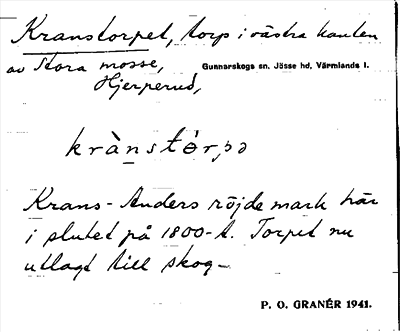 Kranstorpet, torp i västra kanten
av Stora mosse,
Gunnarskogs sn, Jösse hd, Värmlands l.
Hjerperud,
krànstó̱rpə
Krans-Anders röjde mark här
i slutet på 1800-t. Torpet nu
utlagt till skog–
P. O. GRANÉR 1941.